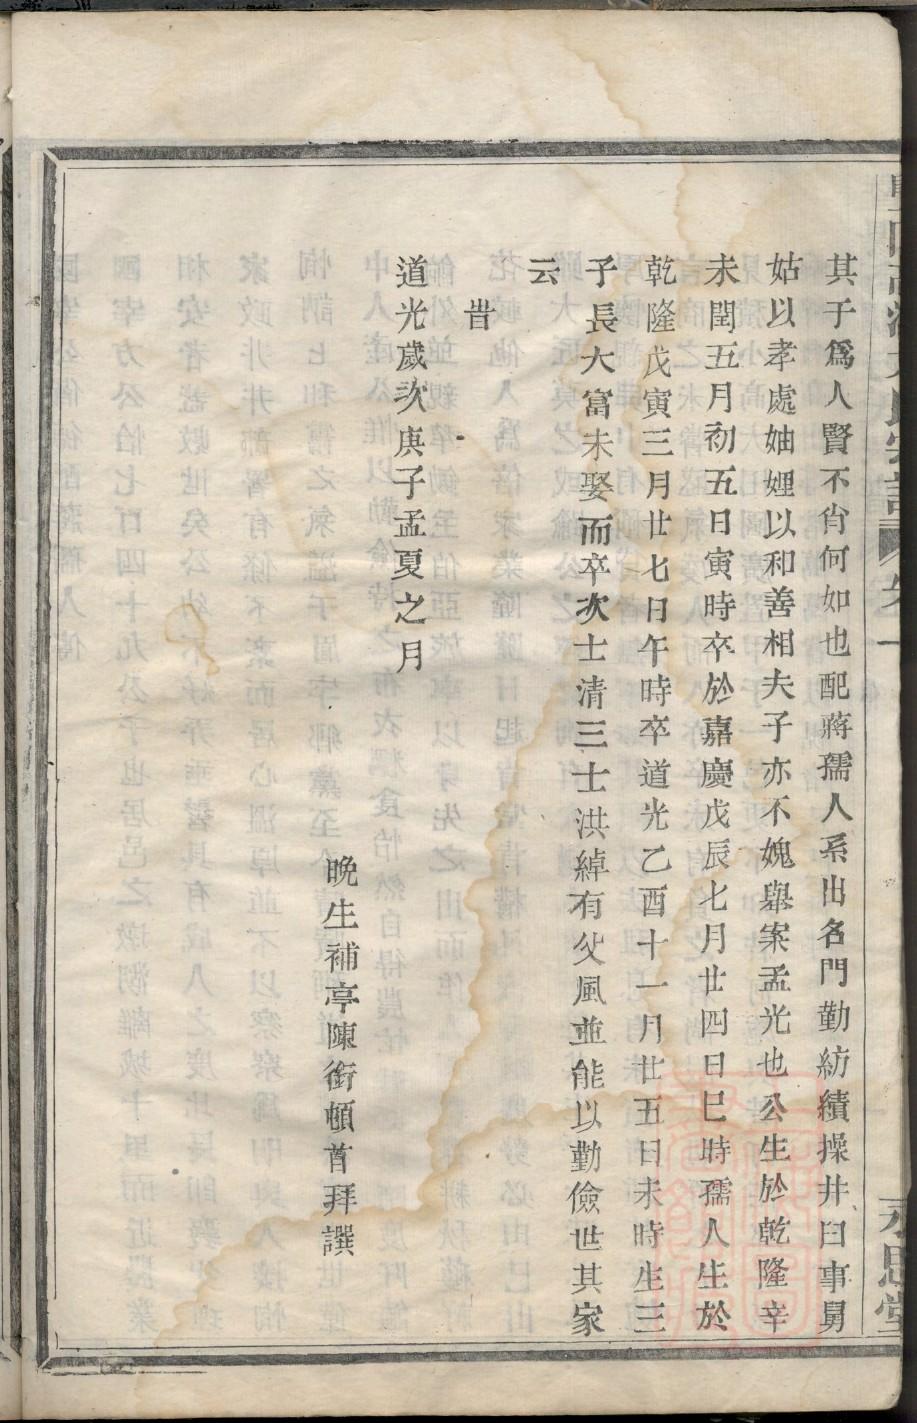 其于爲人賢不肖何如也配蔣孺人系出名門勤紡績操井臼事舅
姑以孝處妯娌以和善相夫子亦不媿舉案孟光也公生於乾隆辛
未閏五月初五日寅時卒於嘉慶戊辰七月廿四日巳時孺人生於
乾隆戊寅三月廿七日午時卒道光乙酉十一月廿五日未時生三
子長大富未娶而卒次士清三士洪綽有父風並能以勤儉世其家
云
旹
道光歲次庚子孟夏之月
晚生補亭陳銜頓首拜譔
永思堂